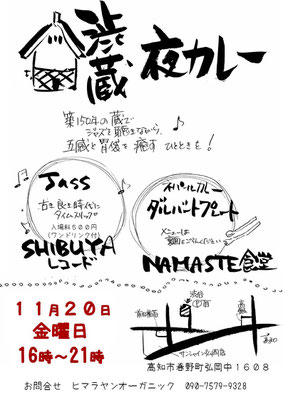 渋蔵 夜カレー
築150年の蔵で
ジャズを聴きながら、
五感と胃袋を癒す ひとときを!
Jass
古き良き時代に
タイムスリップ
入場料500円
(ワンドリンク付)
SHIBUYA
レコード
ネパールカレー
ダルバートプレート
メニューは
裏面をごらんください
NAMASTE食堂
11月20日
金曜日
16時～21時
渋蔵
サンシャイン弘岡店
高知市春野町弘岡中1608
お問合せ ヒマラヤンオーガニック 090-7579-9328